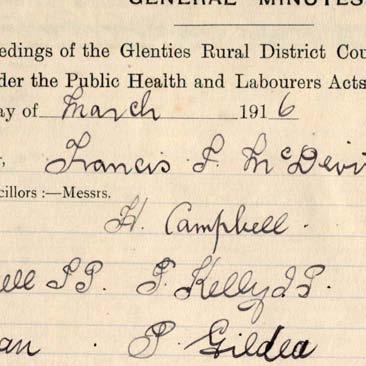 GENERAL MINUTES
edings of the Glenties Rural District Cou
der the Public Health and Labourers Acts
ay of March 1916
Francis F. McDevi
cillors :—Messrs.
H. Campbell.
ell J.P. P. Kelly J.P.
an . P. Gildea